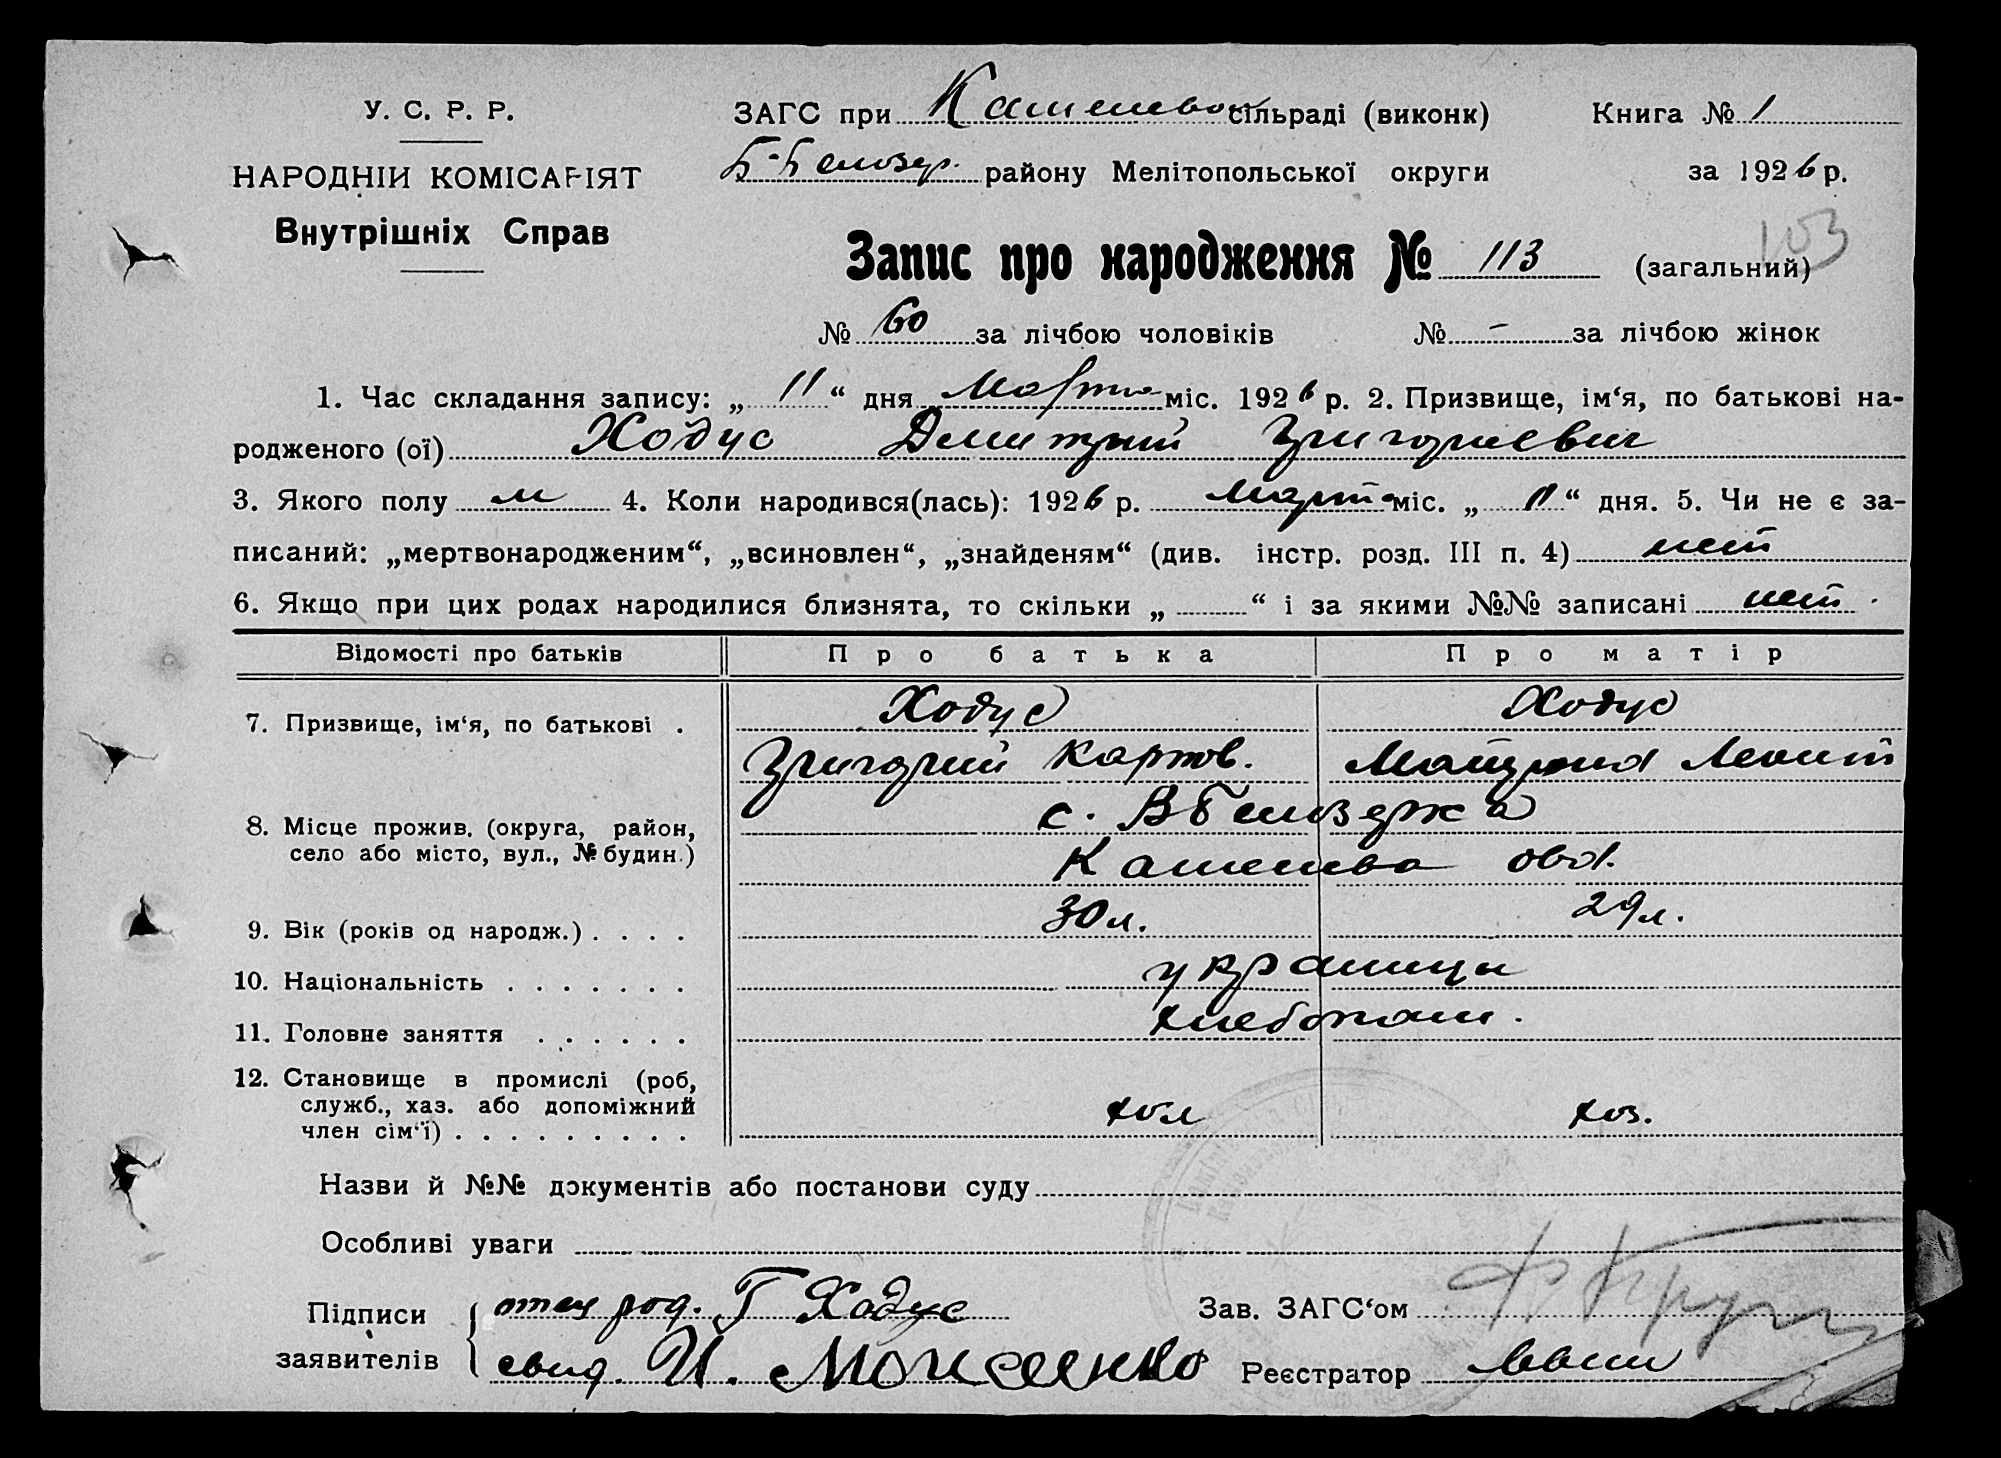 У. С. Р. Р.
НАРОДНІЙ КОМІСАРІЯТ
Внутрішніх Справ
ЗАГС при сільраді (виконк) Книга № 1
Б-Белозер. району Мелітопольської округи за 1926 р.
103
Запис про народження № 113 (загальний)
№ 60 за лічбою чоловіків № - за лічбою жінок
1. Час складання запису: „ 11 “ дня Марта міс. 1926 р. 2. Призвище, ім‘я, по батькові на-
родженого (ої) Ходус Дмитрий Григориевич
3. Якого полу м 4. Коли народився(лась): 1926 р. марта міс. „ 11 “ дня. 5. Чи не є за-
писаний: „мертвонародженим“, „всиновлен“, „знайденям“ (див. інстр. розд. III п. 4) нет
6. Якщо при цих родах народилися близнята, то скільки „ “ і за якими №№ записані нет
Відомості про батьків Про батька Про матір
7. Призвище, ім‘я, по батькові . Ходус Ходус
Григорий Карпов.
8. Місце прожив. (округа, район,
село або місто, вул., № будин.)
с.
9. Вік (років од народж.) . . . . 30 л. 29 л.
10. Національність . . . . . . . украинцы
11. Головне заняття . . . . . . хлебопаш.
12. Становище в промислі (роб,
служб., хаз. або допоміжний
член сім‘ї) . . . . . . . . . хоз.
Назви й №№ документів або постанови суду
Особливі уваги
Підписи
заявителів
отец род. Г Ходус
свид. И. Моисеенко
Зав. ЗАГС‘ом
Реєстратор